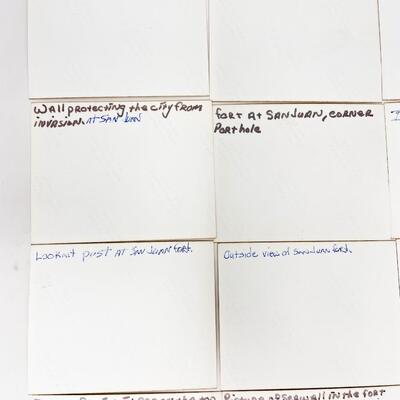 Wall protecting the city from
invasion. at SAN JUAN
fort At SAN JUAN, CORNER
Porthole
Lookout post AT SAN JUAN fort.
Outside view of SAN JUAN fort.
Picture of seawall in the fort